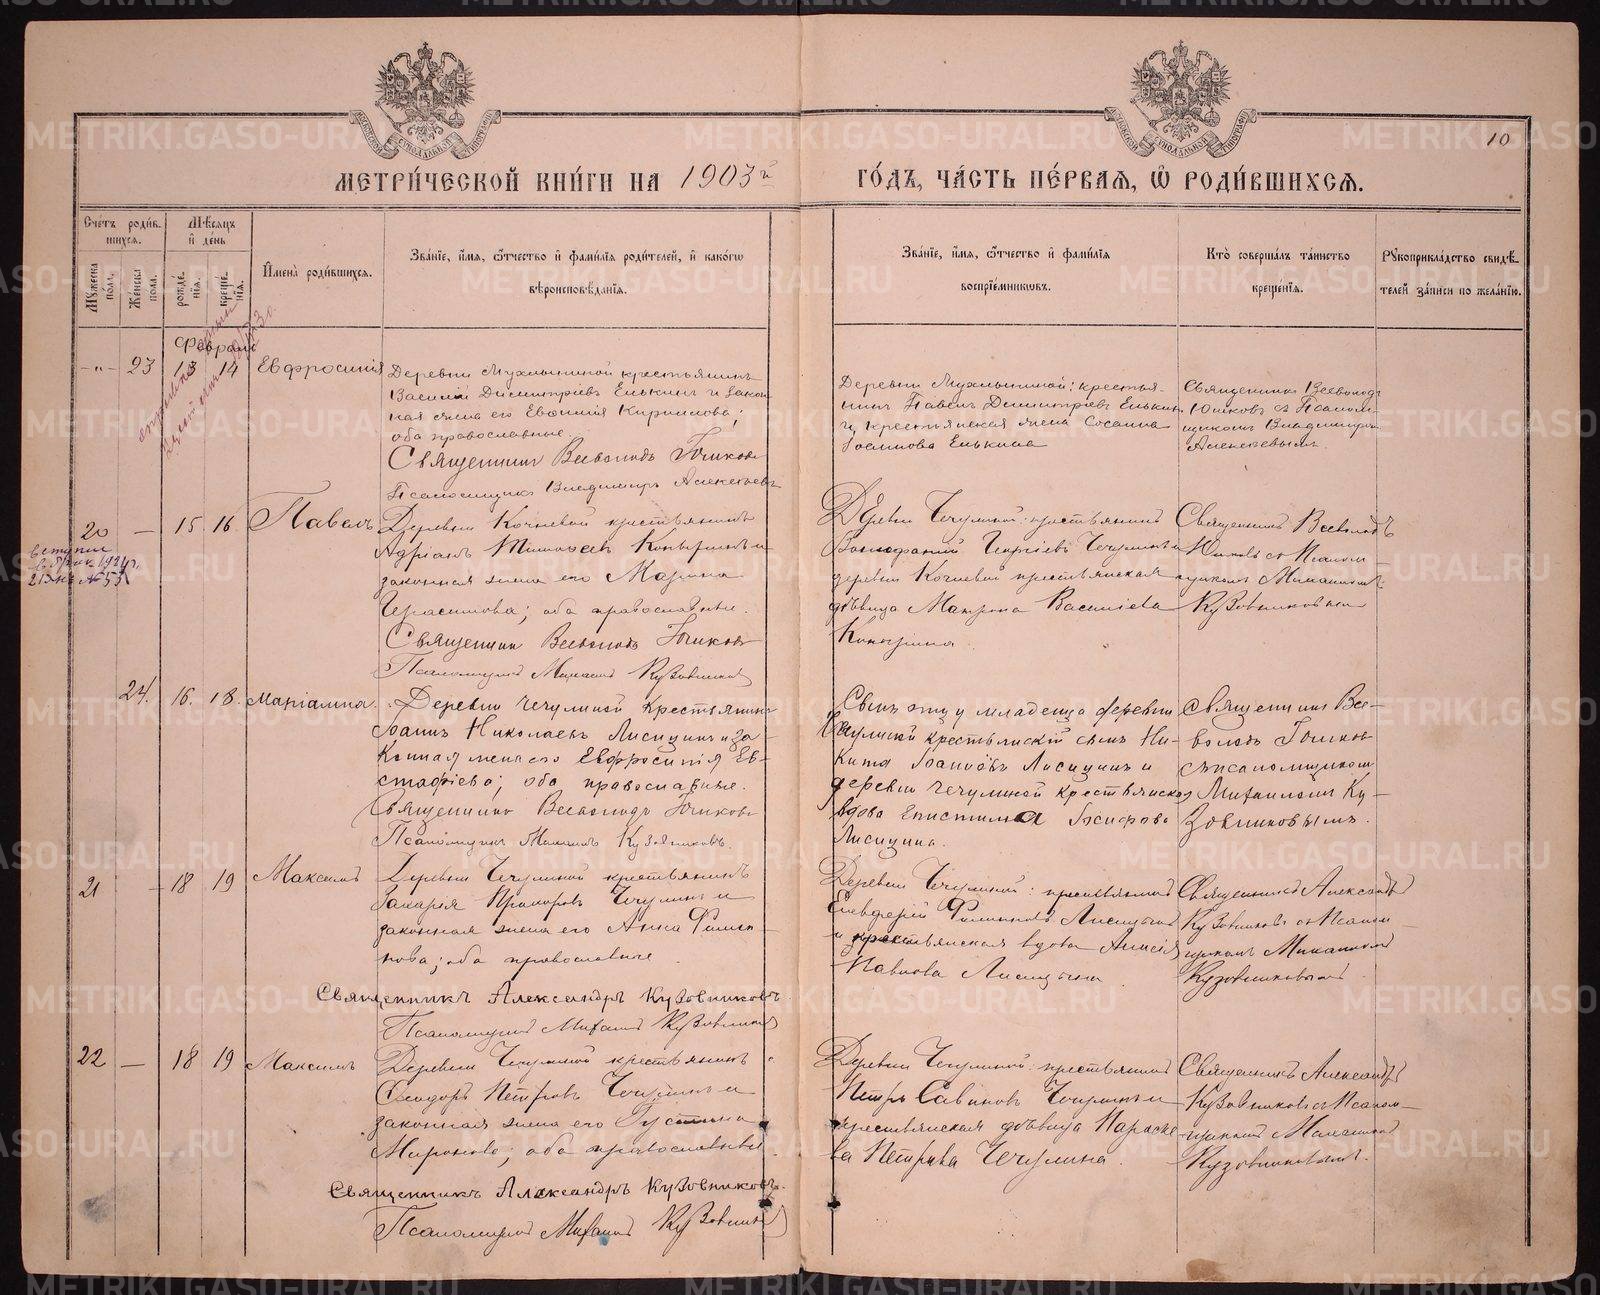 МЕТРИ́ЧЕСКОЙ КНИ́ГИ НА 1903й ГО́ДЪ, ЧА́СТЬ ПЕ́РВАЯ, Ѿ РОДИ́ВШИХСЯ.
10
Сче́тъ роди́в-
шихся.
Мѣ́сяцъ
и҆ де́нь
Мꙋ́жеска по́лъ.
Же́нска полъ.
рожде́нїя.
креще́нїя.
И҆мена̀ роди́вшихся.
Зва́нїе, и҆́мѧ, ѻ҆́тчество и҆ фами́лїя роди́телей, и҆ како́гѡ
вѣроисповѣ́данїя.
Зва́нїе, и҆́мѧ, ѻ҆́тчество и҆ фами́лїя
воспрїе́мникѡвъ.
Кто̀ соверша́лъ та́инство
креще́нїя.
Рꙋкоприкла́дство свидѣ́-
телей за́писи по жела́нїю.
февраль
-"- 23 13 14 Евфросинія
Деревни Мухлыниной крестьянинъ
Василій Димитріевъ Елькинъ и закон-
ная жена его Евѳимія Кириллова;
оба православные.
Священникъ Всеволодъ Юшковъ
Псаломщикъ Владимиръ Алексѣевъ
Деревни Мухлыниной: крестья-
нинъ Павелъ Димитріевъ Елькинъ
и крестьянская жена Сосанна
Елькина
Священникъ Всеволодъ
Юшковъ съ Псалом-
щикомъ Владимиромъ
Алексѣевымъ.
20 — 15 16 Павелъ
вступил
в брак 1924 г.
Деревни Кочневой крестьянинъ
Адріанъ Тимоѳеевъ Копыринъ и
законная жена его Марина
Герасимова; оба православные.
Священникъ Всеволодъ Юшковъ
Псаломщикъ Михаилъ Кузовниковъ
Деревни Чечулиной: крестьянинъ
Вонифатій Георгіевъ Чечулинъ и
деревни Кочневой крестьянская
дѣвица Матрона Василіева
Копырина.
Священникъ Всеволодъ
Юшковъ съ Псалом-
щикомъ Михаиломъ
Кузовниковымъ
24. 16. 18. Маріамна.
Деревни Чечулиной крестьянинъ
Іоаннъ Николаевъ Лисицинъ и за-
конная жена его Евфросинія Ев-
стафіева; оба православные.
Священникъ Всеволодъ Юшковъ
Псаломщикъ Михаилъ Кузовниковъ.
Сынъ отцу младенца деревни
Чечулиной крестьянскій сынъ Ни-
кита Іоанновъ Лисицинъ и
деревни Чечулиной крестьянская
вдова Епистимія Іосифова
Лисицина.
Священникъ Все-
володъ Юшковъ
съ псаломщикомъ
Михаиломъ Ку-
зовниковымъ.
21 — 18 19 Максимъ
Деревни Чечулиной крестьянинъ
Захарія Прохоровъ Чечулинъ и
законная жена его Анна Филип-
пова; оба православные.
Священникъ Александръ Кузовниковъ.
Псаломщикъ Михаилъ Кузовниковъ
Деревни Чечулиной: крестьянинъ
Елевферій Филипповъ Лисицынъ
и крестьянская вдова Анисія
Павлова Лисицына.
Священникъ Александръ
Кузовниковъ съ Псалом-
щикомъ Михаиломъ
Кузовниковымъ
22 — 18 19 Максимъ
Деревни Чечулиной крестьянинъ
Ѳеодоръ Петровъ Чечулинъ и
законная жена его Іустина
Миронова; оба православные.
Священникъ Александръ Кузовниковъ.
Псаломщикъ Михаилъ Кузовниковъ
Деревни Чечулиной: крестьянинъ
Петръ Савиновъ Чечулинъ и
крестьянская дѣвица Параске-
ва Петрова Чечулина.
Священникъ Александръ
Кузовниковъ съ Псалом-
щикомъ Михаиломъ
Кузовниковымъ.
METRIKI.GASO-URAL.RU